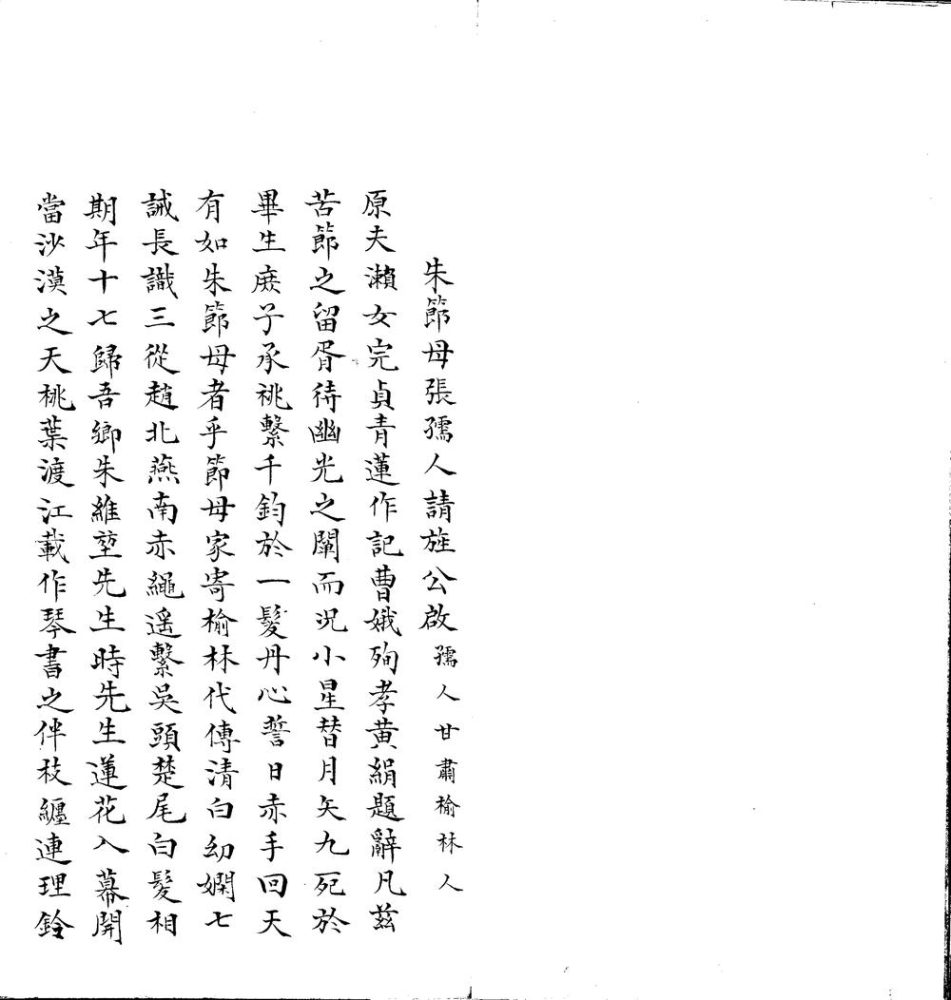 朱節母張孺人請旌公啟孺人甘肅榆林人
原夫瀨女完貞青蓮作記曹娥殉孝黃絹題辭凡茲
苦節之留胥待幽光之闡而況小星替月矢九死於
畢生庶子承祧繫千鈞於一髮丹心誓日赤手回天
有如朱節母者乎節母家寄榆林代傳清白幼嫻七
誡長識三從趙北燕南赤繩遥繫吳頭楚尾白髮相
期年十七歸吾鄉朱維堃先生時先生蓮花入幕開
當沙漠之天桃葉渡江載作琴書之伴枝纏連理鈴